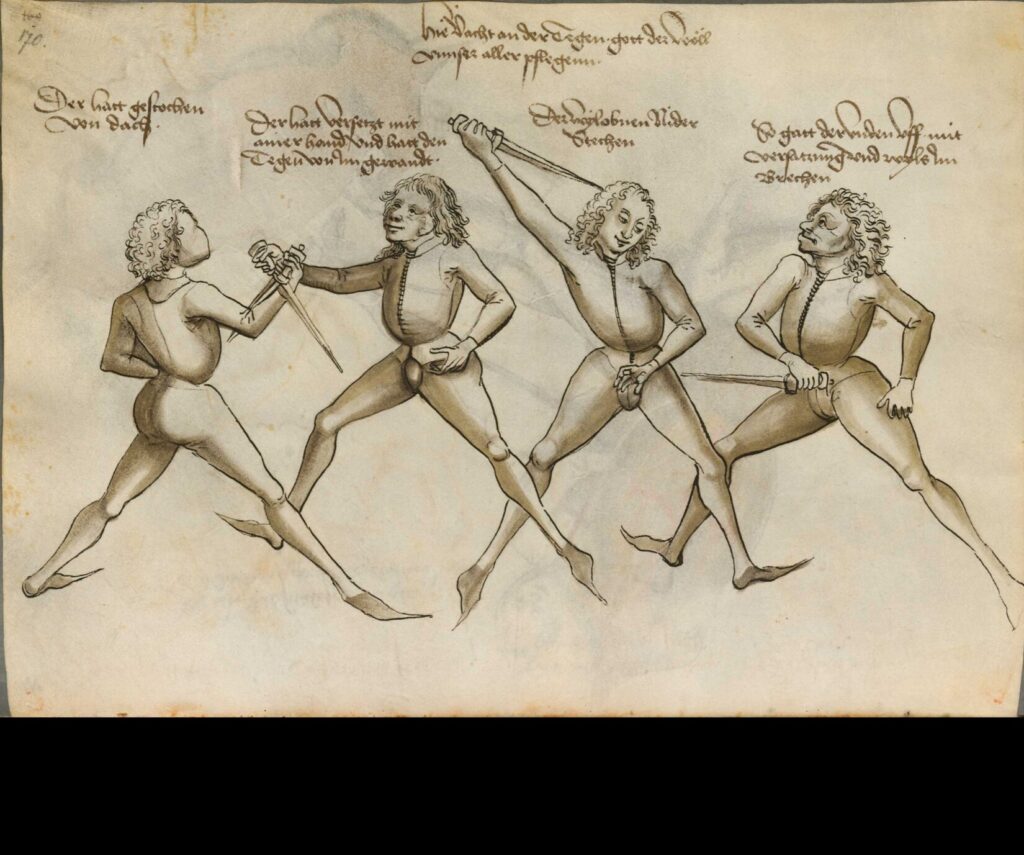 170.
Hie vacht an der Tegen gott der wöll
vunser aller pflegenn.
Der hatt gestochen
von dach.
Der hatt versetzt mit
ainer hand vnd hatt den
Tegen von im gewandt.
Der wyl obnen Nider
Stechen
So gatt der vnden vff mit
versatzung vnd wyls Im
Brechen